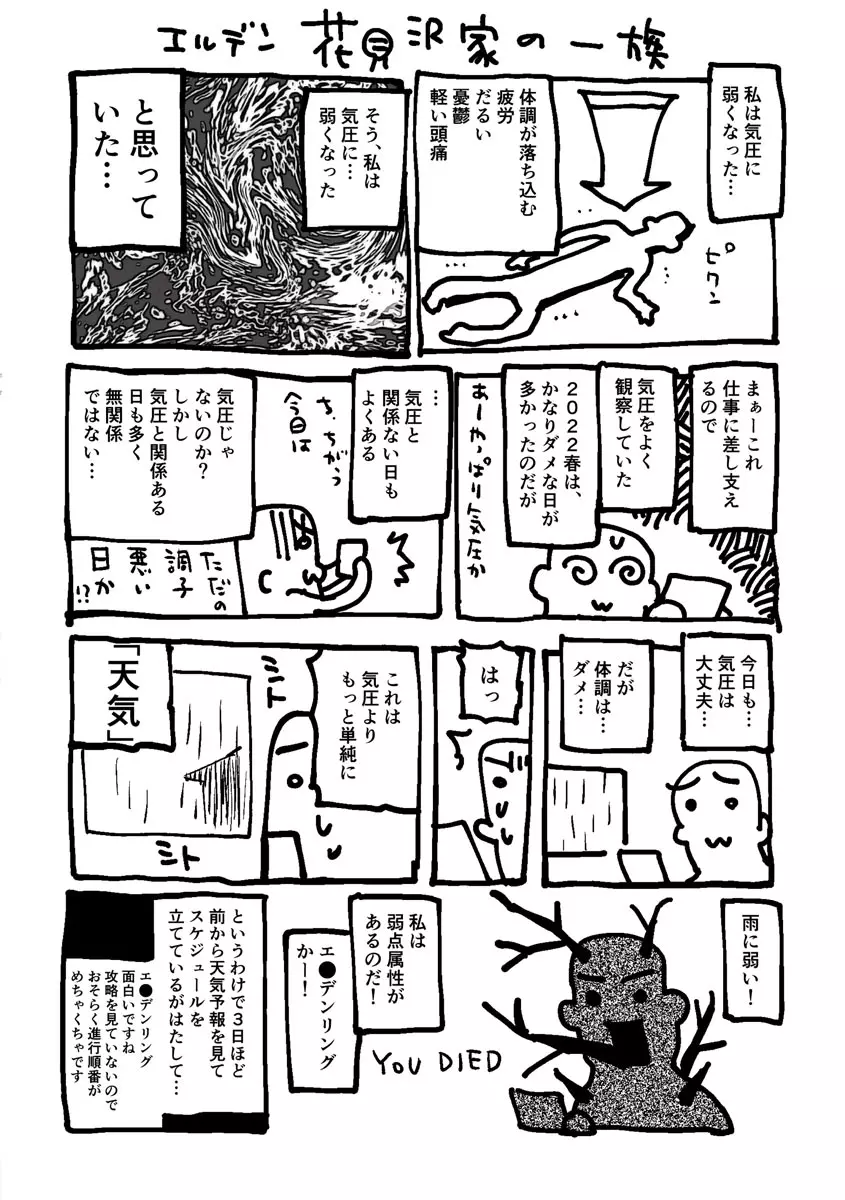 エルデン 花見沢家の一族
私は気圧に
弱くなった…
体調が落ち込む
疲労
だるい
憂鬱
軽い頭痛
ピクン
そう、私は
気圧に…
弱くなった
と思って
いた…
まぁーこれ
仕事に差し支え
るので
気圧をよく
観察していた
2022春は、
かなりダメな日が
多かったのだが
あーやっぱり気圧か
…
気圧と
関係ない日も
よくある
ち、ちがう
今日は
気圧じゃ
ないのか?
しかし
気圧と関係ある
日も多く
無関係
ではない…
ただの
調子
悪い
日か
!?
今日も…
気圧は
大丈夫…
だが
体調は…
ダメ…
はっ
これは
気圧より
もっと単純に
シト
シト
「天気」
雨に弱い!
私は
弱点属性が
あるのだ!
エ●デンリング
かー!
YOU DIED
というわけで3日ほど
前から天気予報を見て
スケジュールを
立てているがはたして…
エ●デンリング
面白いですね
攻略を見ていないので
おそらく進行順番が
めちゃくちゃです